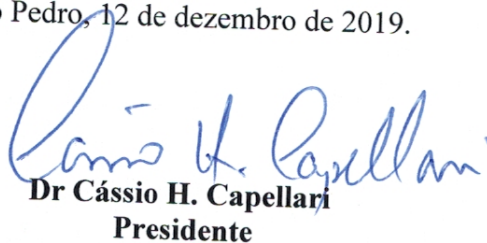 Pedro, 12 de dezembro de 2019.
Cássio H. Capellari
Dr Cássio H. Capellari
Presidente